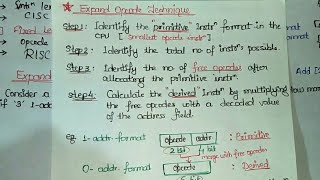 Smtⁿ len
CISC
Fixed Le
opcode
RISC
Expand
Consider a
if '3' 1-add
* Expand Opcode Technique
Step1: Identify the "primitive" instrⁿ format in the
CPU [smallest opcode instrⁿ]
Step2: Identify the total no of instrⁿ possible.
Step3: Identify the no of free opcodes after
allocating the primitive instrⁿ.
Step4: Calculate the "derived" instrⁿ by multiplying
the free opcodes with a decoded value
of the address field.
eg 1-addr format opcode addr : Primitive
2 bit 4 bit
merge with free opcodes
0- addr format opcode : Derived
how
Add